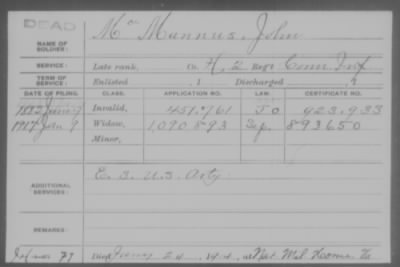 DEAD
NAME OF SOLDIER: Mc Mannus, John
SERVICE: Late rank, Co. H, 2 Reg't Conn Inf
TERM OF SERVICE: Enlisted , 1 Discharged , 1
DATE OF FILING. CLASS. APPLICATION NO. LAW. CERTIFICATE NO.
1882 Invalid, 451.761 923.933
1917 9 Widow, 1.090.893 893650
Minor,
ADDITIONAL SERVICES: E. 3. U.S. Arty
REMARKS:
Died 24, at Nat. Mil. Va